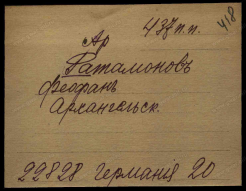 437 п.п. 418
Ар
Ратамоновъ
Феофанъ
Архангельск.
22828 Германія 20